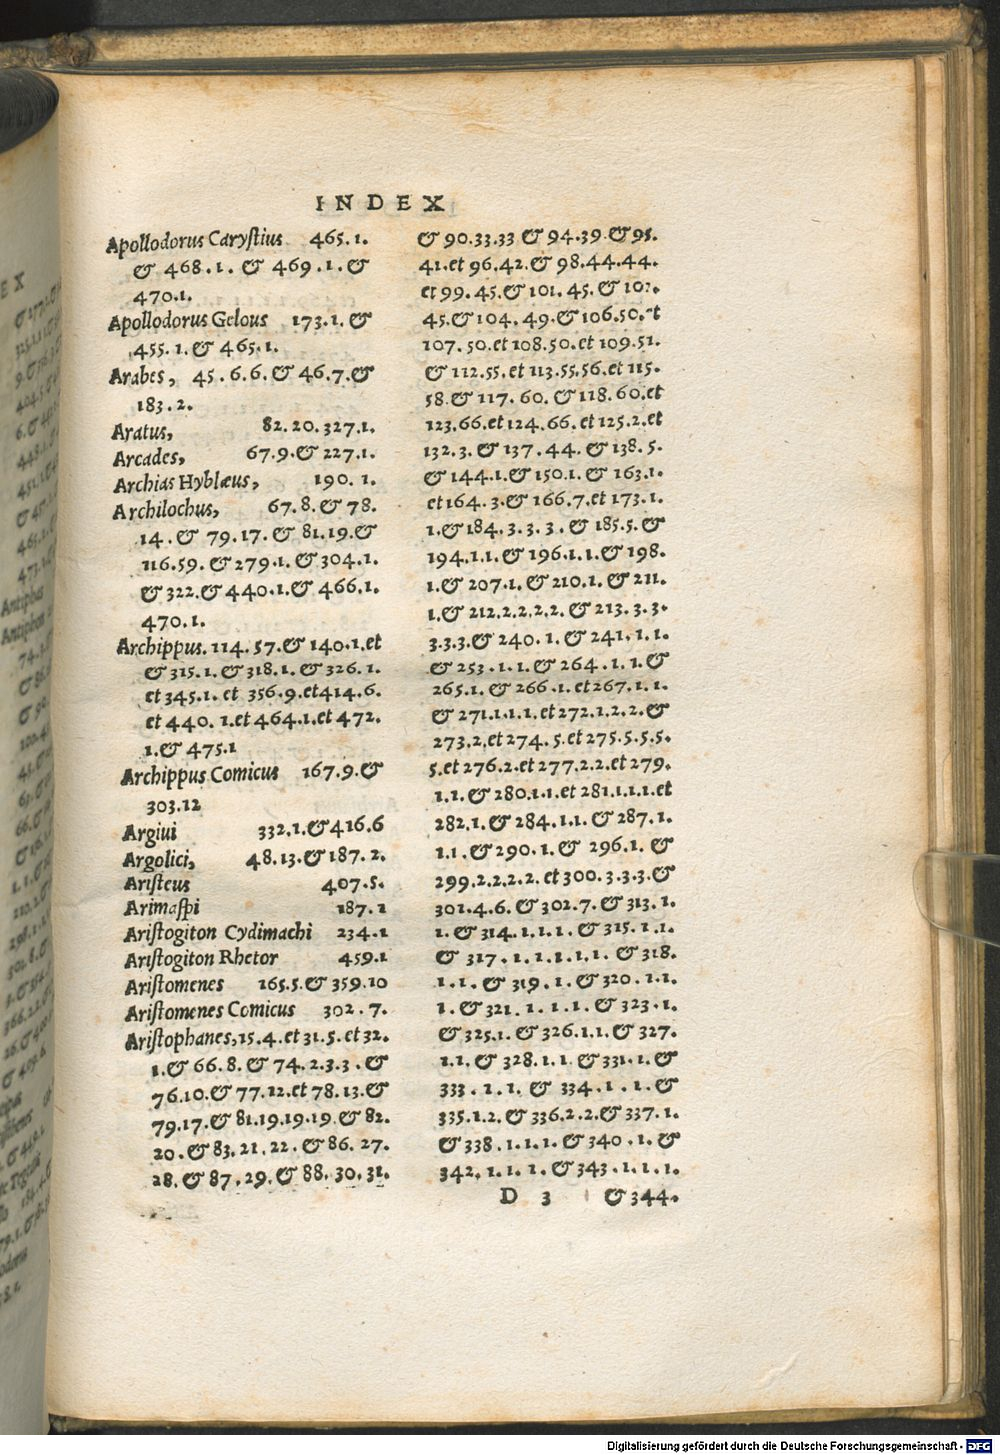 INDEX
Apollodorus Carystius 465.1.
& 468.1. & 469.1.&
470.1.
Apollodorus Gelous 173.1.&
455.1.& 465.1.
Arabes, 45.6.6.& 46.7.&
183.2.
Aratus, 82.20.327.1.
Arcades, 67.9.& 227.1.
Archias Hyblæus, 190.1.
Archilochus, 67.8.& 78.
14.& 79.17.& 81.19.&
116.59.& 279.1.& 304.1.
& 322.& 440.1.& 466.1.
470.1.
Archippus. 114.57.& 140.1.et
& 315.1.& 318.1.& 326.1.
et 345.1. et 356.9.et 414.6.
et 440. 1.et 464.1.et 472.
1.& 475.1
Archippus Comicus 167.9.&
303.12
Argiui 332.1.& 416.6
Argolici, 48.13.& 187.2.
Aristeus 407.5.
Arimaspi 187.1
Aristogiton Cydimachi 234.1
Aristogiton Rhetor 459.1
Aristomenes 165.5.& 359.10
Aristomenes Comicus 302.7.
Aristophanes, 15.4.et 31.5.et 32.
1.& 66.8.& 74.2.3.3.&
76.10.& 77.12.et 78.13.&
79.17.& 81.19.19.19.& 82.
20.& 83.21.22.& 86.27.
28.& 87.29.& 88.30.31.
& 90.33.33 & 94.39.& 95.
41.et 96.42.& 98.44.44.
et 99.45.& 101.45.&
45.& 104.49.& 106.50.
107.50.et 108.50.et 109.51.
& 112.55.et 113.55.56.et 115.
58.& 117.60.& 118.60.et
123.66.et 124.66.et 125.2.et
132.3.& 137.44.& 138.5.
& 144.1.& 150.1.& 163.1.
et 164.3.& 166.7.et 173.1.
1.& 184.3.3.3.& 185.5.&
194.1.1.& 196.1.1.& 198.
1.& 207.1.& 210.1.& 211.
1.& 212.2.2.2.2.& 213.3.3.
3.3.3.& 240.1.& 241.1.1.
& 253.1.1.& 264.1.1.&
265.1.& 266.1.et 267.1.1.
& 271.1.1.1.et 272.1.2.2.&
273.2.et 274.5.et 275.5.5.5.
5.et 276.2.et 277.2.2.et 279.
1.1.& 280.1.1.et 281.1.1.1.et
282.1.& 284.1.1.& 287.1.
1.1.& 290.1.& 296.1.&
299.2.2.2.2.et 300.3.3.3.&
301.4.6.& 302.7.& 313.1.
1.& 314.1.1.1.& 315.1.1.
& 317.1.1.1.1.1.& 318.
1.1.& 319.1.& 320.1.1.
1.& 321.1.1.1.& 323.1.
& 325.1.& 326.1.1.& 327.
1.1.& 328.1.1.& 331.1.&
333.1.1.& 334.1.1.&
335.1.2.& 336.2.2.& 337.1.
& 338.1.1.1.& 340.1.&
342.1.1.1.& 343.1.1.1.
D 3 & 344.
Digitalisierung gefördert durch die Deutsche Forschungsgemeinschaft - DFG